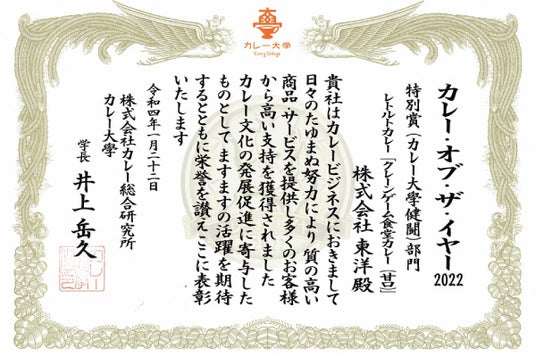 カレー大學
Curry College
カレー・オブ・ザ・イヤー2022
特別賞（カレー大學健闘）部門
レトルトカレー「クレーンゲーム食堂カレー（甘口）」
株式会社 東洋 殿
貴社はカレービジネスにおきまして
日々のたゆまぬ努力により 質の高い
商品・サービスを提供し多くのお客様
から高い支持を獲得されました
カレー文化の発展促進に寄与した
ものとして ますますの活躍を期待
するとともに栄誉を讃え ここに表彰
いたします
令和四年一月二十二日
株式会社カレー総合研究所
カレー大學
学長 井上 岳久